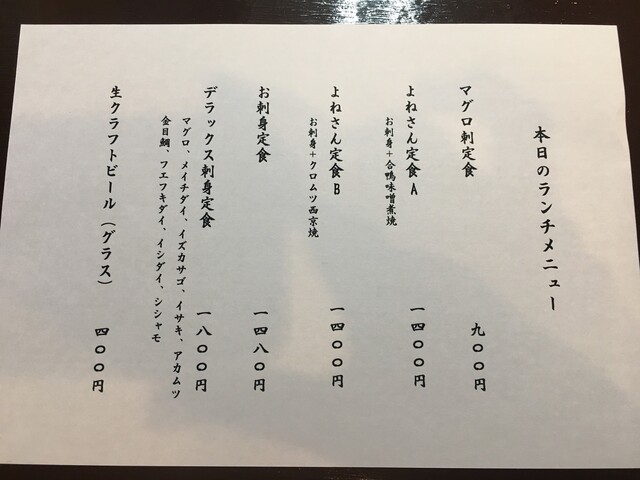 本日のランチメニュー
マグロ刺定食 九〇〇円
よねさん定食A 一四〇〇円
お刺身+合鴨味噌煮焼
よねさん定食B 一四〇〇円
お刺身+クロムツ西京焼
お刺身定食 一四八〇円
デラックス刺身定食 一八〇〇円
マグロ、メイチダイ、イズカサゴ、イサキ、アカムツ
金目鯛、フエフキダイ、イシダイ、シシャモ
生クラフトビール(グラス) 四〇〇円